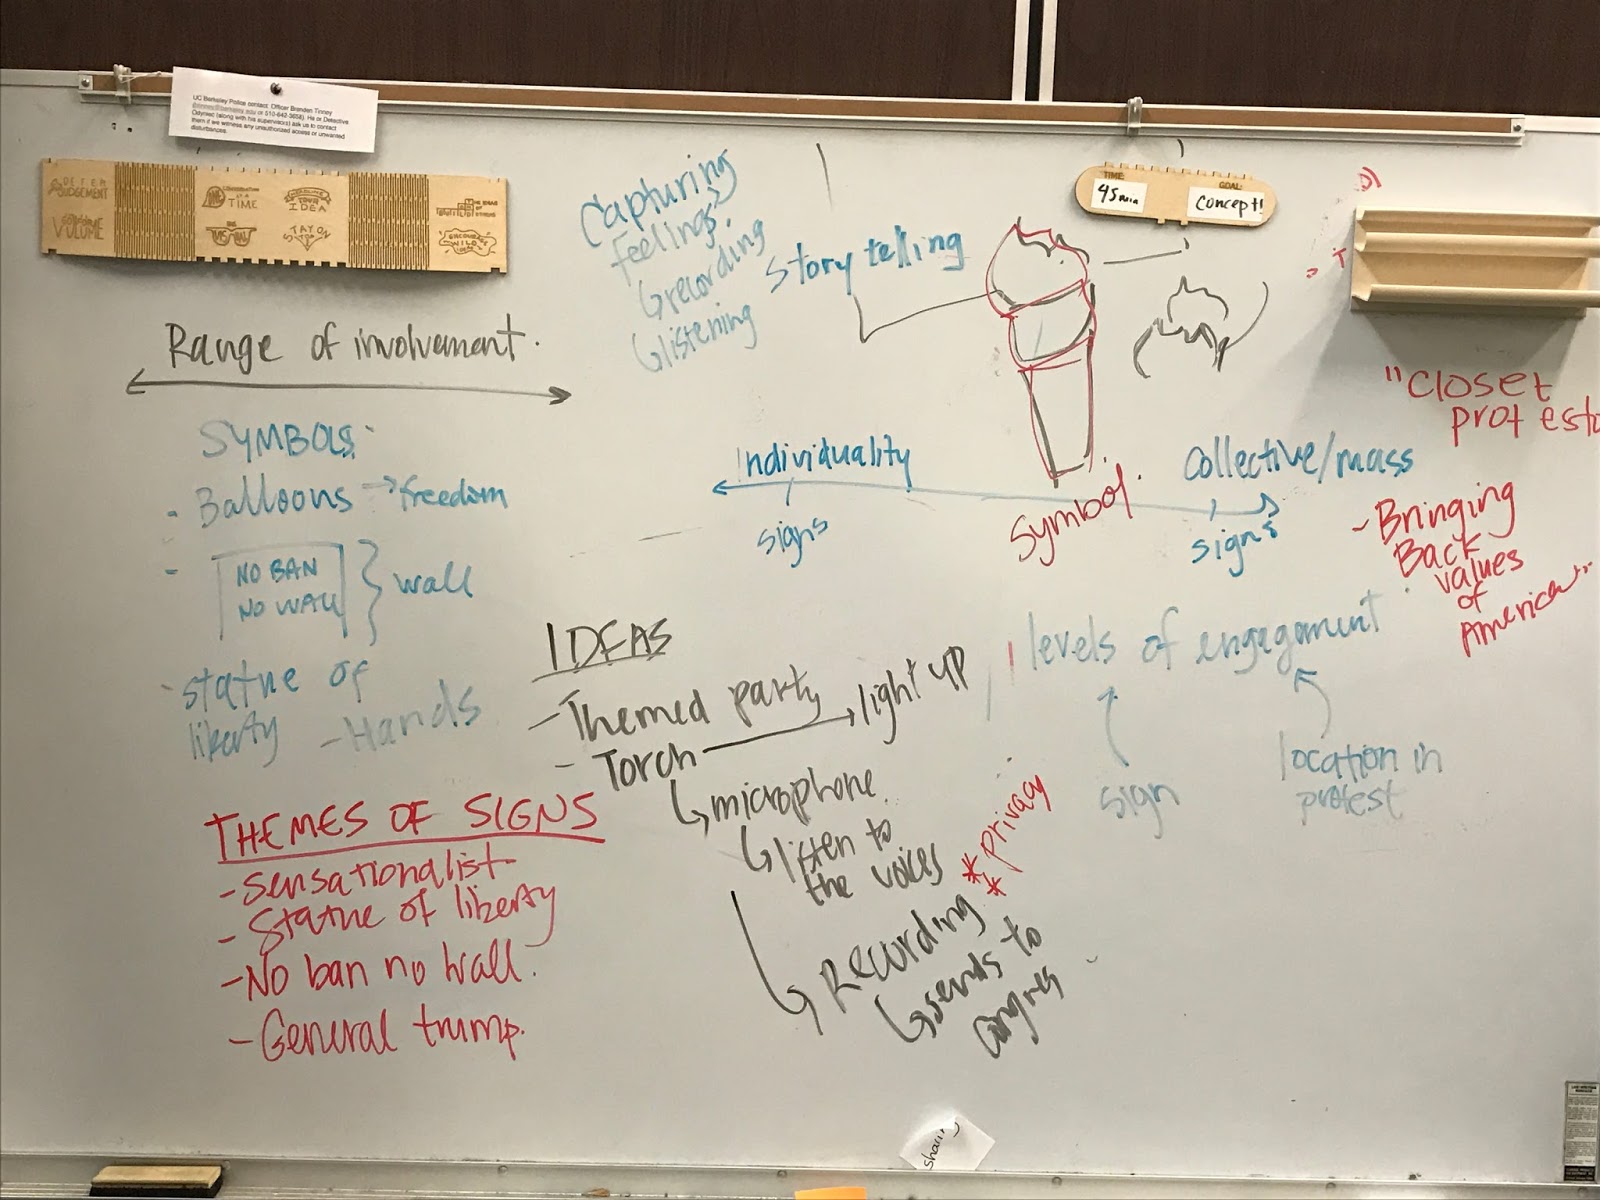 UC Berkeley Police contact: Officer Brenden Tinney
or 510-642-3658). He or Detective
Odyniec (along with his supervisors) ask us to contact
them if we witness any unauthorized access or unwanted
disturbances.
DEFER
JUDGEMENT
GO FOR
VOLUME
ONE
CONVERSATION
AT A
TIME
BE
VISUAL
HEADLINE
YOUR
IDEA
STAY ON
TOPIC
BUILD
ON
THE IDEAS OF
OTHERS
ENCOURAGE
WILD
IDEAS
TIME:
45min
GOAL:
Concept!
Capturing
feelings?
recording
listening
Story telling
Range of involvement.
SYMBOLS:
- Balloons → freedom
- NO BAN
NO WALL
} wall
- statue of
liberty
- Hands
Individuality
signs
Symbol.
Collective/mass
signs
"Closet
protesto
- Bringing
Back
values
of
America"
levels of engagament
sign
location in
protest
IDEAS
- Themed party
- Torch → light up
microphone
listen to
the voices
** privacy
Recording
sends to
congres
THEMES OF SIGNS
- Sensationalist
- Statue of liberty
- No ban no wall.
- General trump.
sharing